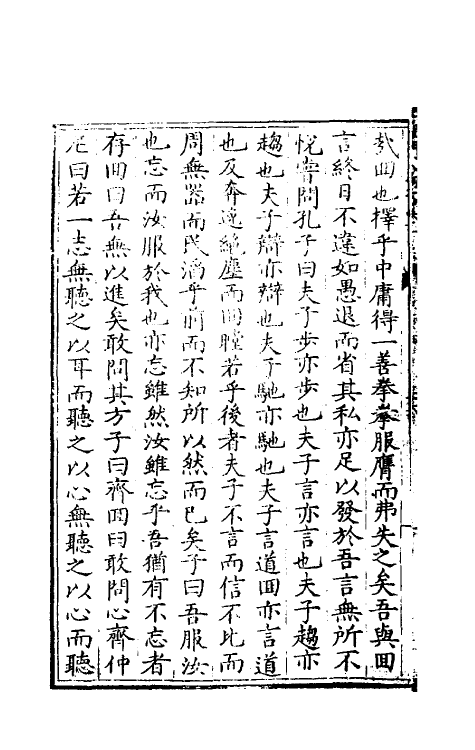 哉回也擇乎中庸得一善拳拳服膺而弗失之矣吾與回
言終日不違如愚退而省其私亦足以發於吾言無所不
悅嘗問孔子曰夫子步亦步也夫子言亦言也夫子趨亦
趨也夫子辯亦辯也夫子馳亦馳也夫子言道回亦言道
也及奔逸絕塵而回瞠若乎後者夫子不言而信不比而
周無器而民滔乎前而不知所以然而已矣子曰吾服汝
也忘而汝服於我也亦忘雖然汝雖忘乎吾猶有不忘者
存回曰吾無以進矣敢問其方子曰齊回曰敢問心齊仲
尼曰若一志無聽之以耳而聽之以心無聽之以心而聽